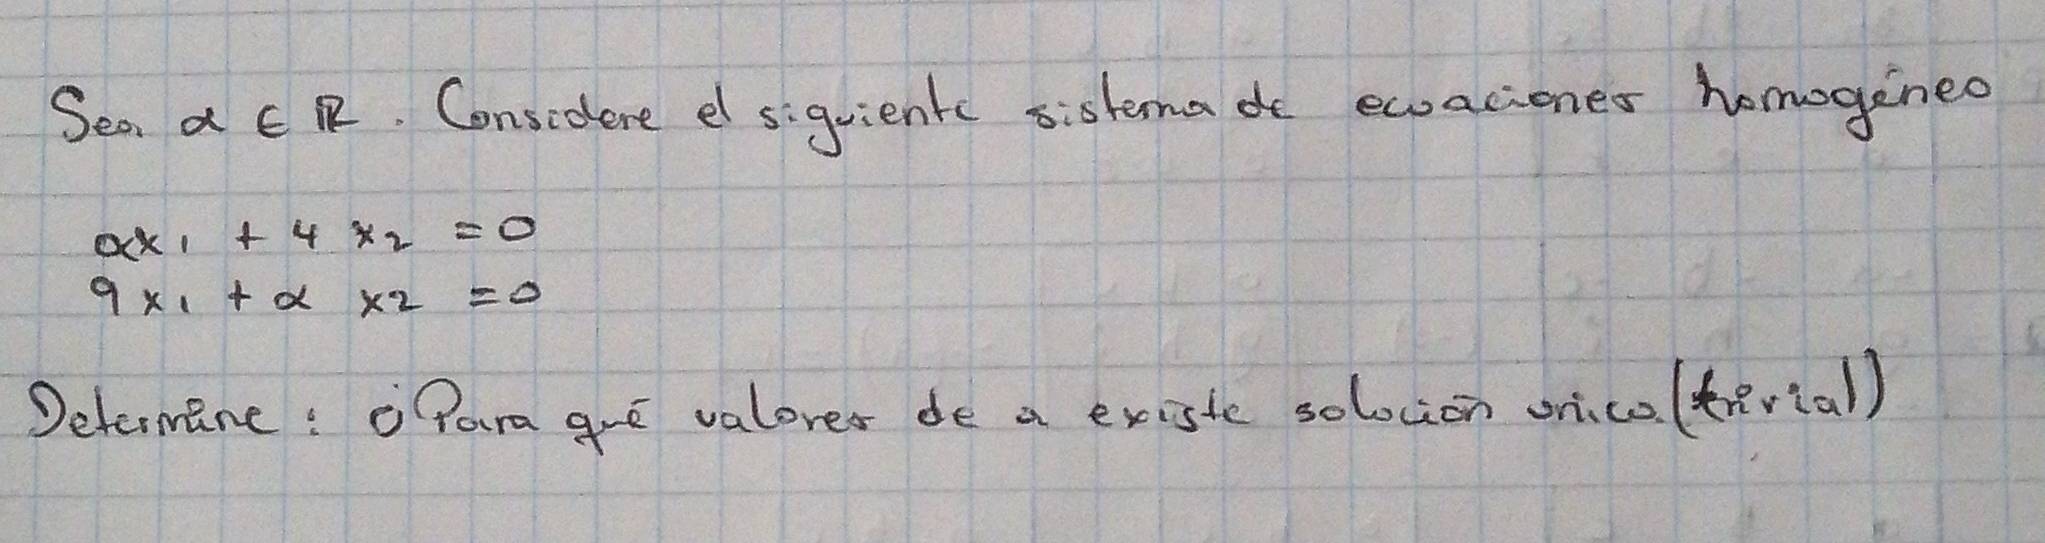 Sea α ∈ ℝ. Considere el siguiente sistema de ecuaciones homogéneo
αx₁ + 4 x₂ = 0
9x₁ + α x2 = 0
Determine: ¿Para qué valores de a existe solución unica (trivial)